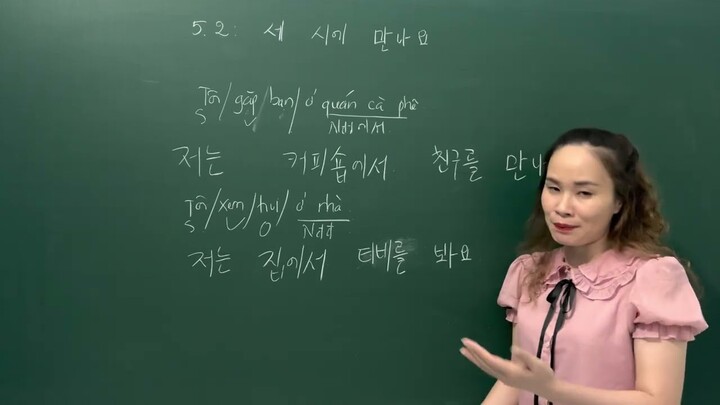 5.2: 세 시에 만나요
Tôi/gặp/bạn/ở quán cà phê
S
N에서
저는 커피숍에서 친구를 만나
Tôi/xem/tivi/ở nhà
S O
저는 집에서 티비를 봐요